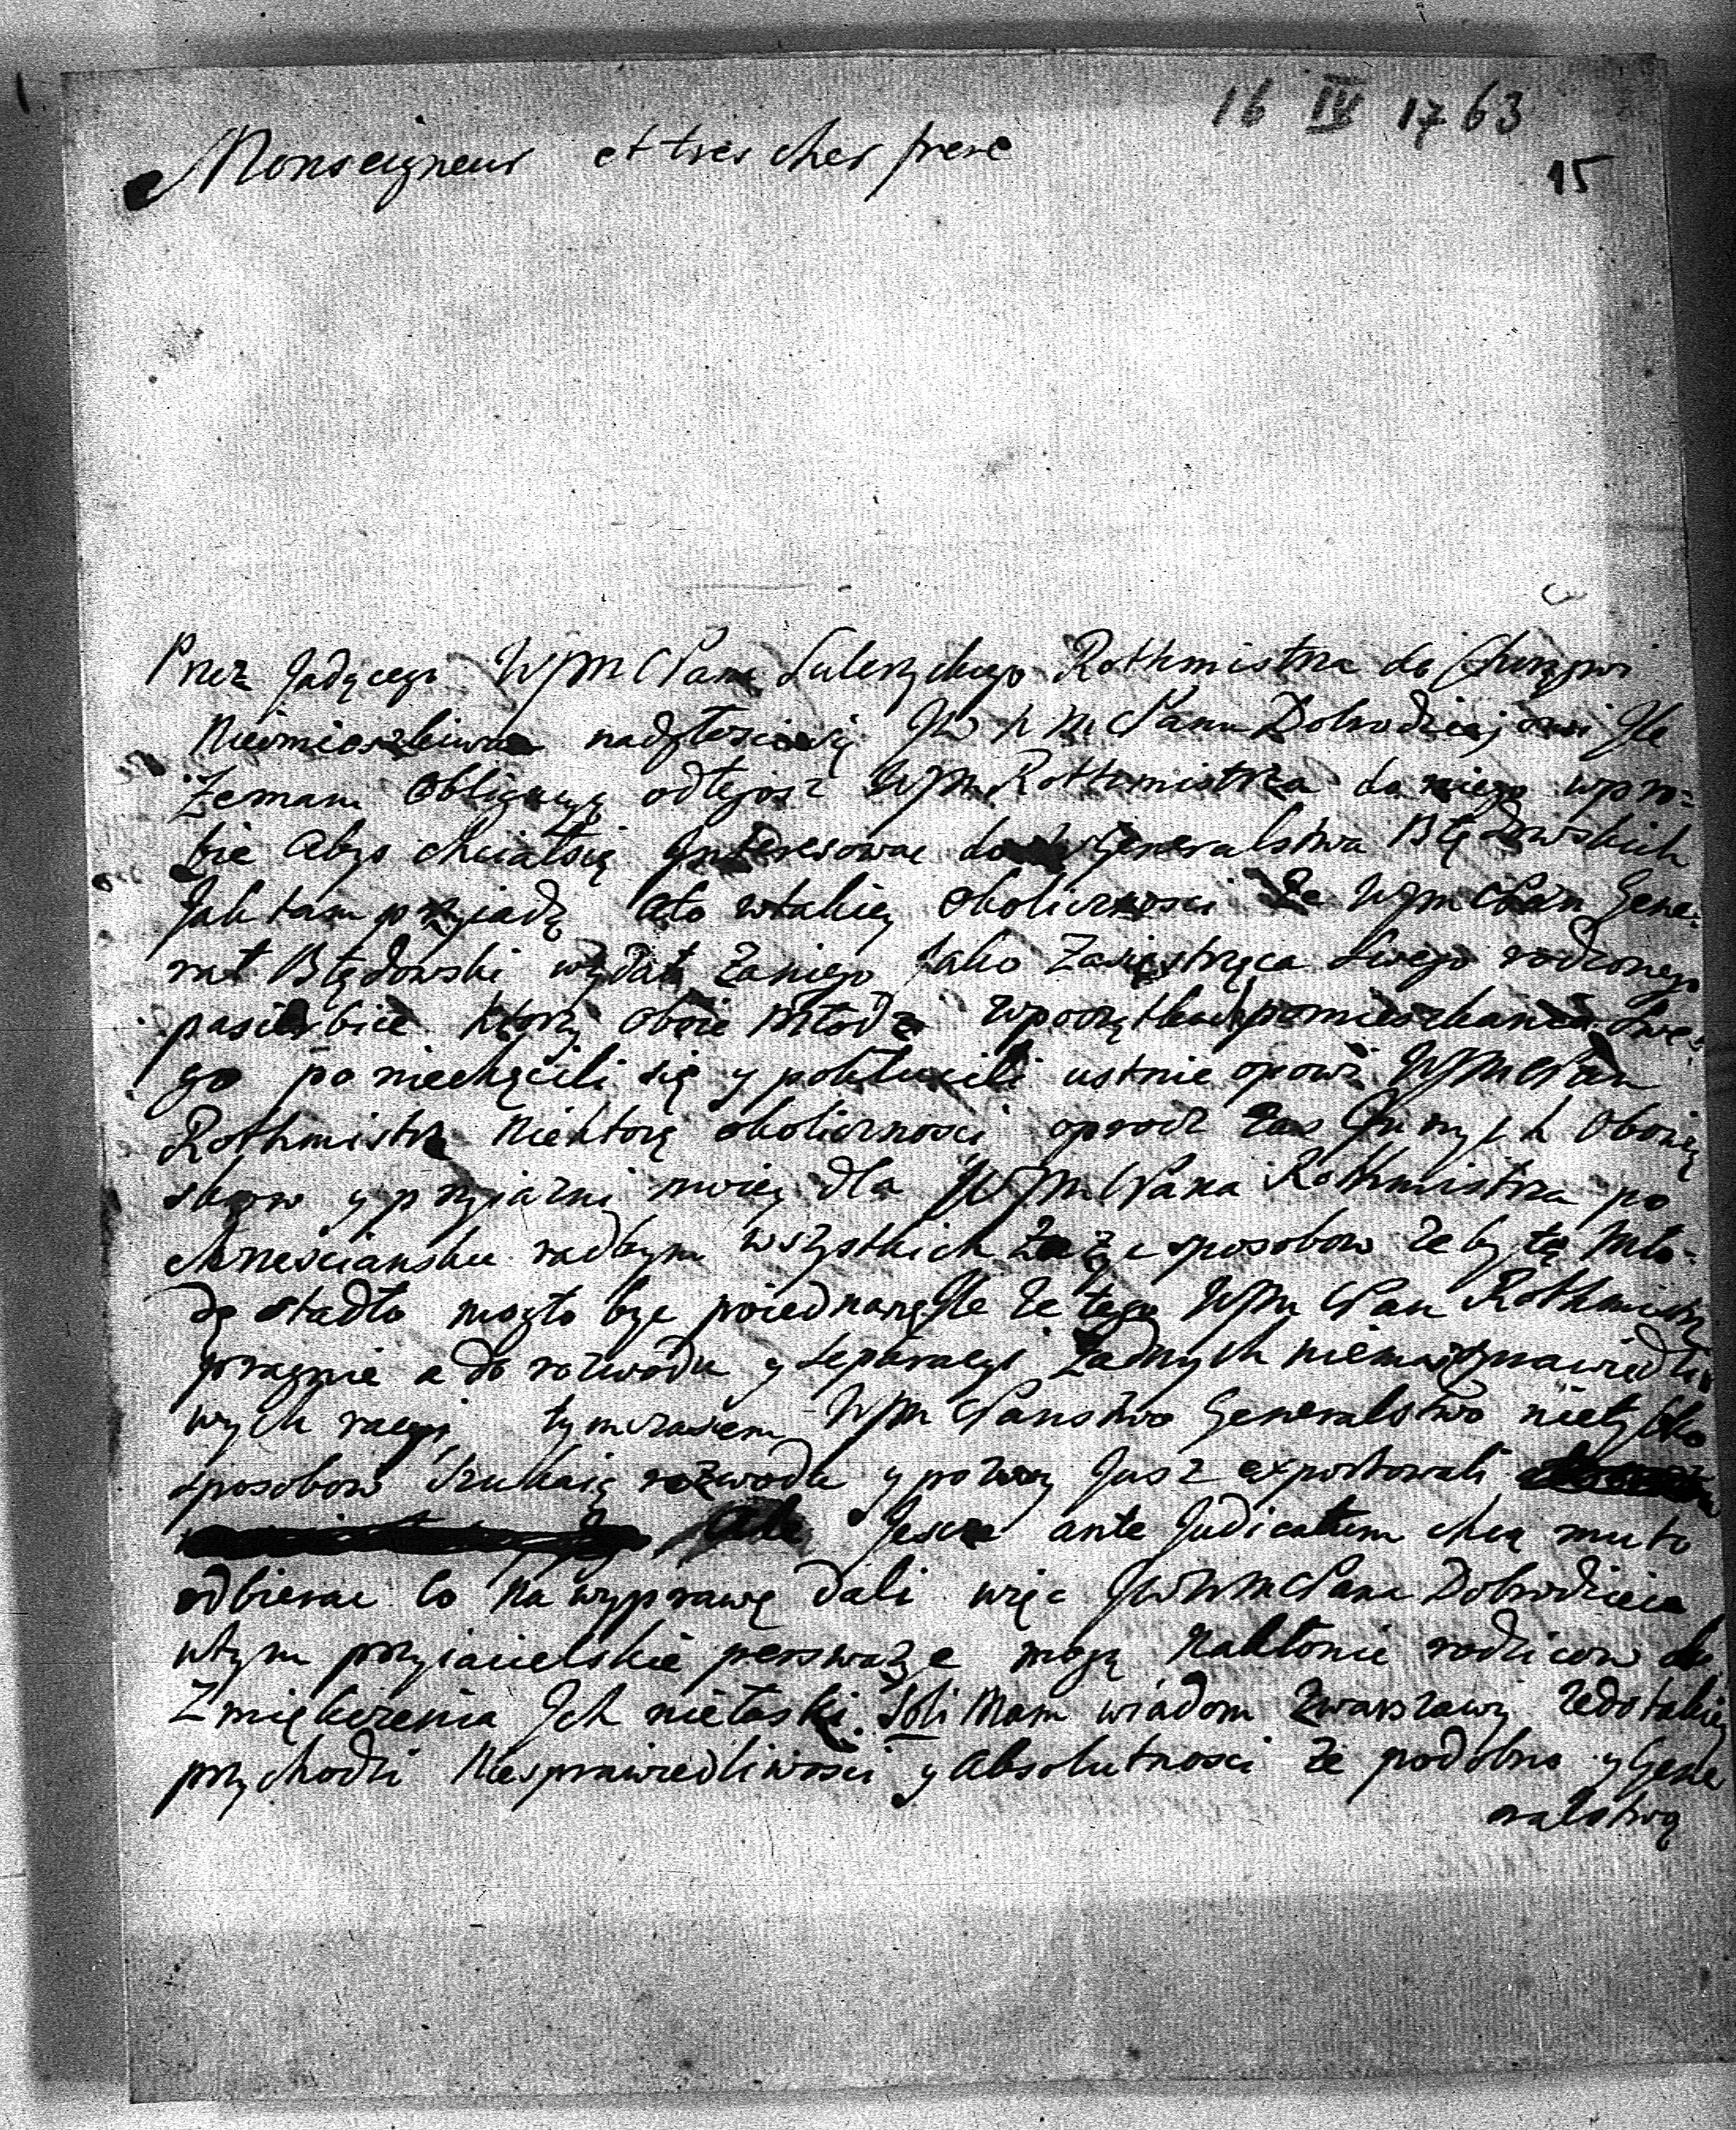 16 IV 1763
15
Monseigneur et tres cher frere
Przez Jadącego WJM Pana Rothmistrza do
nadgłosić się JW Pana Dobrodziejowi Ile
Ze mam obligacyą od tegosz WJM Rothmistrza do niego wpro=
bie abys chciał się Interesowac do Generalstwa Błędowskich
Jak tam przyiadą a to w takiey okolicznosci Ze WJM Pan Gene=
rał Błędowski wydał za niego Jako za siestrzęca swego rodzonego
pasierbice ktorzy oboie młodzi w początkach pomieszkania swe=
go poniechęcili się y pokłucili ustnie opowi WJM Pan
Rothmistrz niektorą okolicznosci oprocz zas Innych obowią
skow y przyiazni moiey dla WJM Pana Rothmistrza po
chrzesciansku radbym wszystkich zażyc sposobow zeby tę mło=
dę stadło mogło byc poiednane Ile ze tego WJM Pan Rothmistrz
pragnie a do rozwodu y separacyi żadnych niemasz sprawiedli
wych racyi tymczasem WJM Panstwo Generalstwo nie tylko
sposobow szukaią rozwodu y pozwy Jusz exportowali
ale Jescze ante Judicatum chcą mu to
odbierac co na wyprawę dali więc JW Pana Dobrodzieia
w tym przyiacielskie perswazye mogą nakłonic rodzicow do
Zmiękczenia Ich niełaski. Soli mam wiadom z Warszawy ze do takiey
przychodzi niesprawiedliwosci y absolutnosci ze podobno y Gene
ralstwą